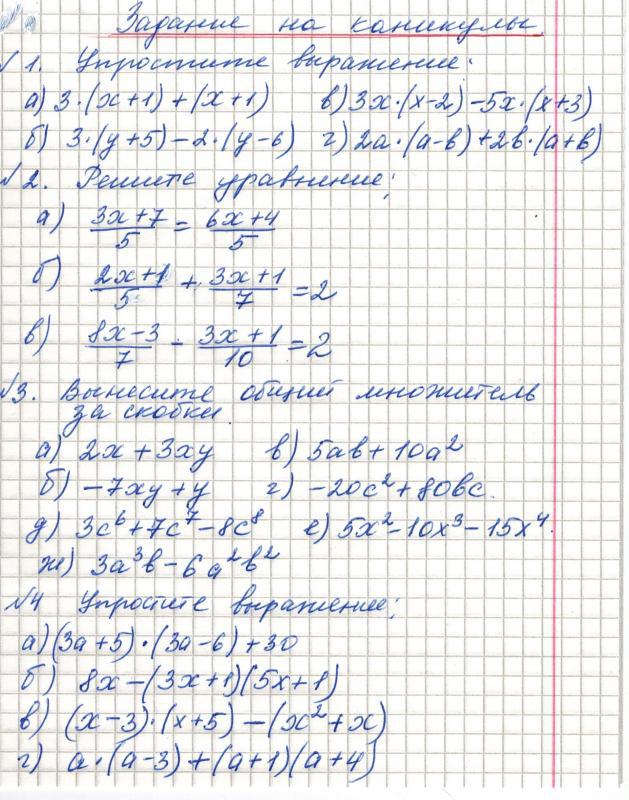 Задание на каникулы.
№1. Упростите выражение:
а) 3·(x+1)+(x+1) в) 3x·(x-2)-5x·(x+3)
б) 3·(y+5)-2·(y-6) г) 2a·(a-b)+2b·(a+b)
№2. Решите уравнение:
а) (3x+7)/5 = (6x+4)/5
б) (2x+1)/5 + (3x+1)/7 = 2
в) (8x-3)/7 - (3x+1)/10 = 2
№3. Вынесите общий множитель
за скобки
а) 2x+3xy в) 5ab+10a²
б) -7xy+y г) -20c²+80bc.
д) 3c⁶+7c⁷-8c⁸ е) 5x²-10x³-15x⁴.
ж) 3a³b-6a²b²
№4 Упростите выражение:
а) (3a+5)·(3a-6)+30
б) 8x-(3x+1)(5x+1)
в) (x-3)·(x+5)-(x²+x)
г) a·(a-3)+(a+1)(a+4)